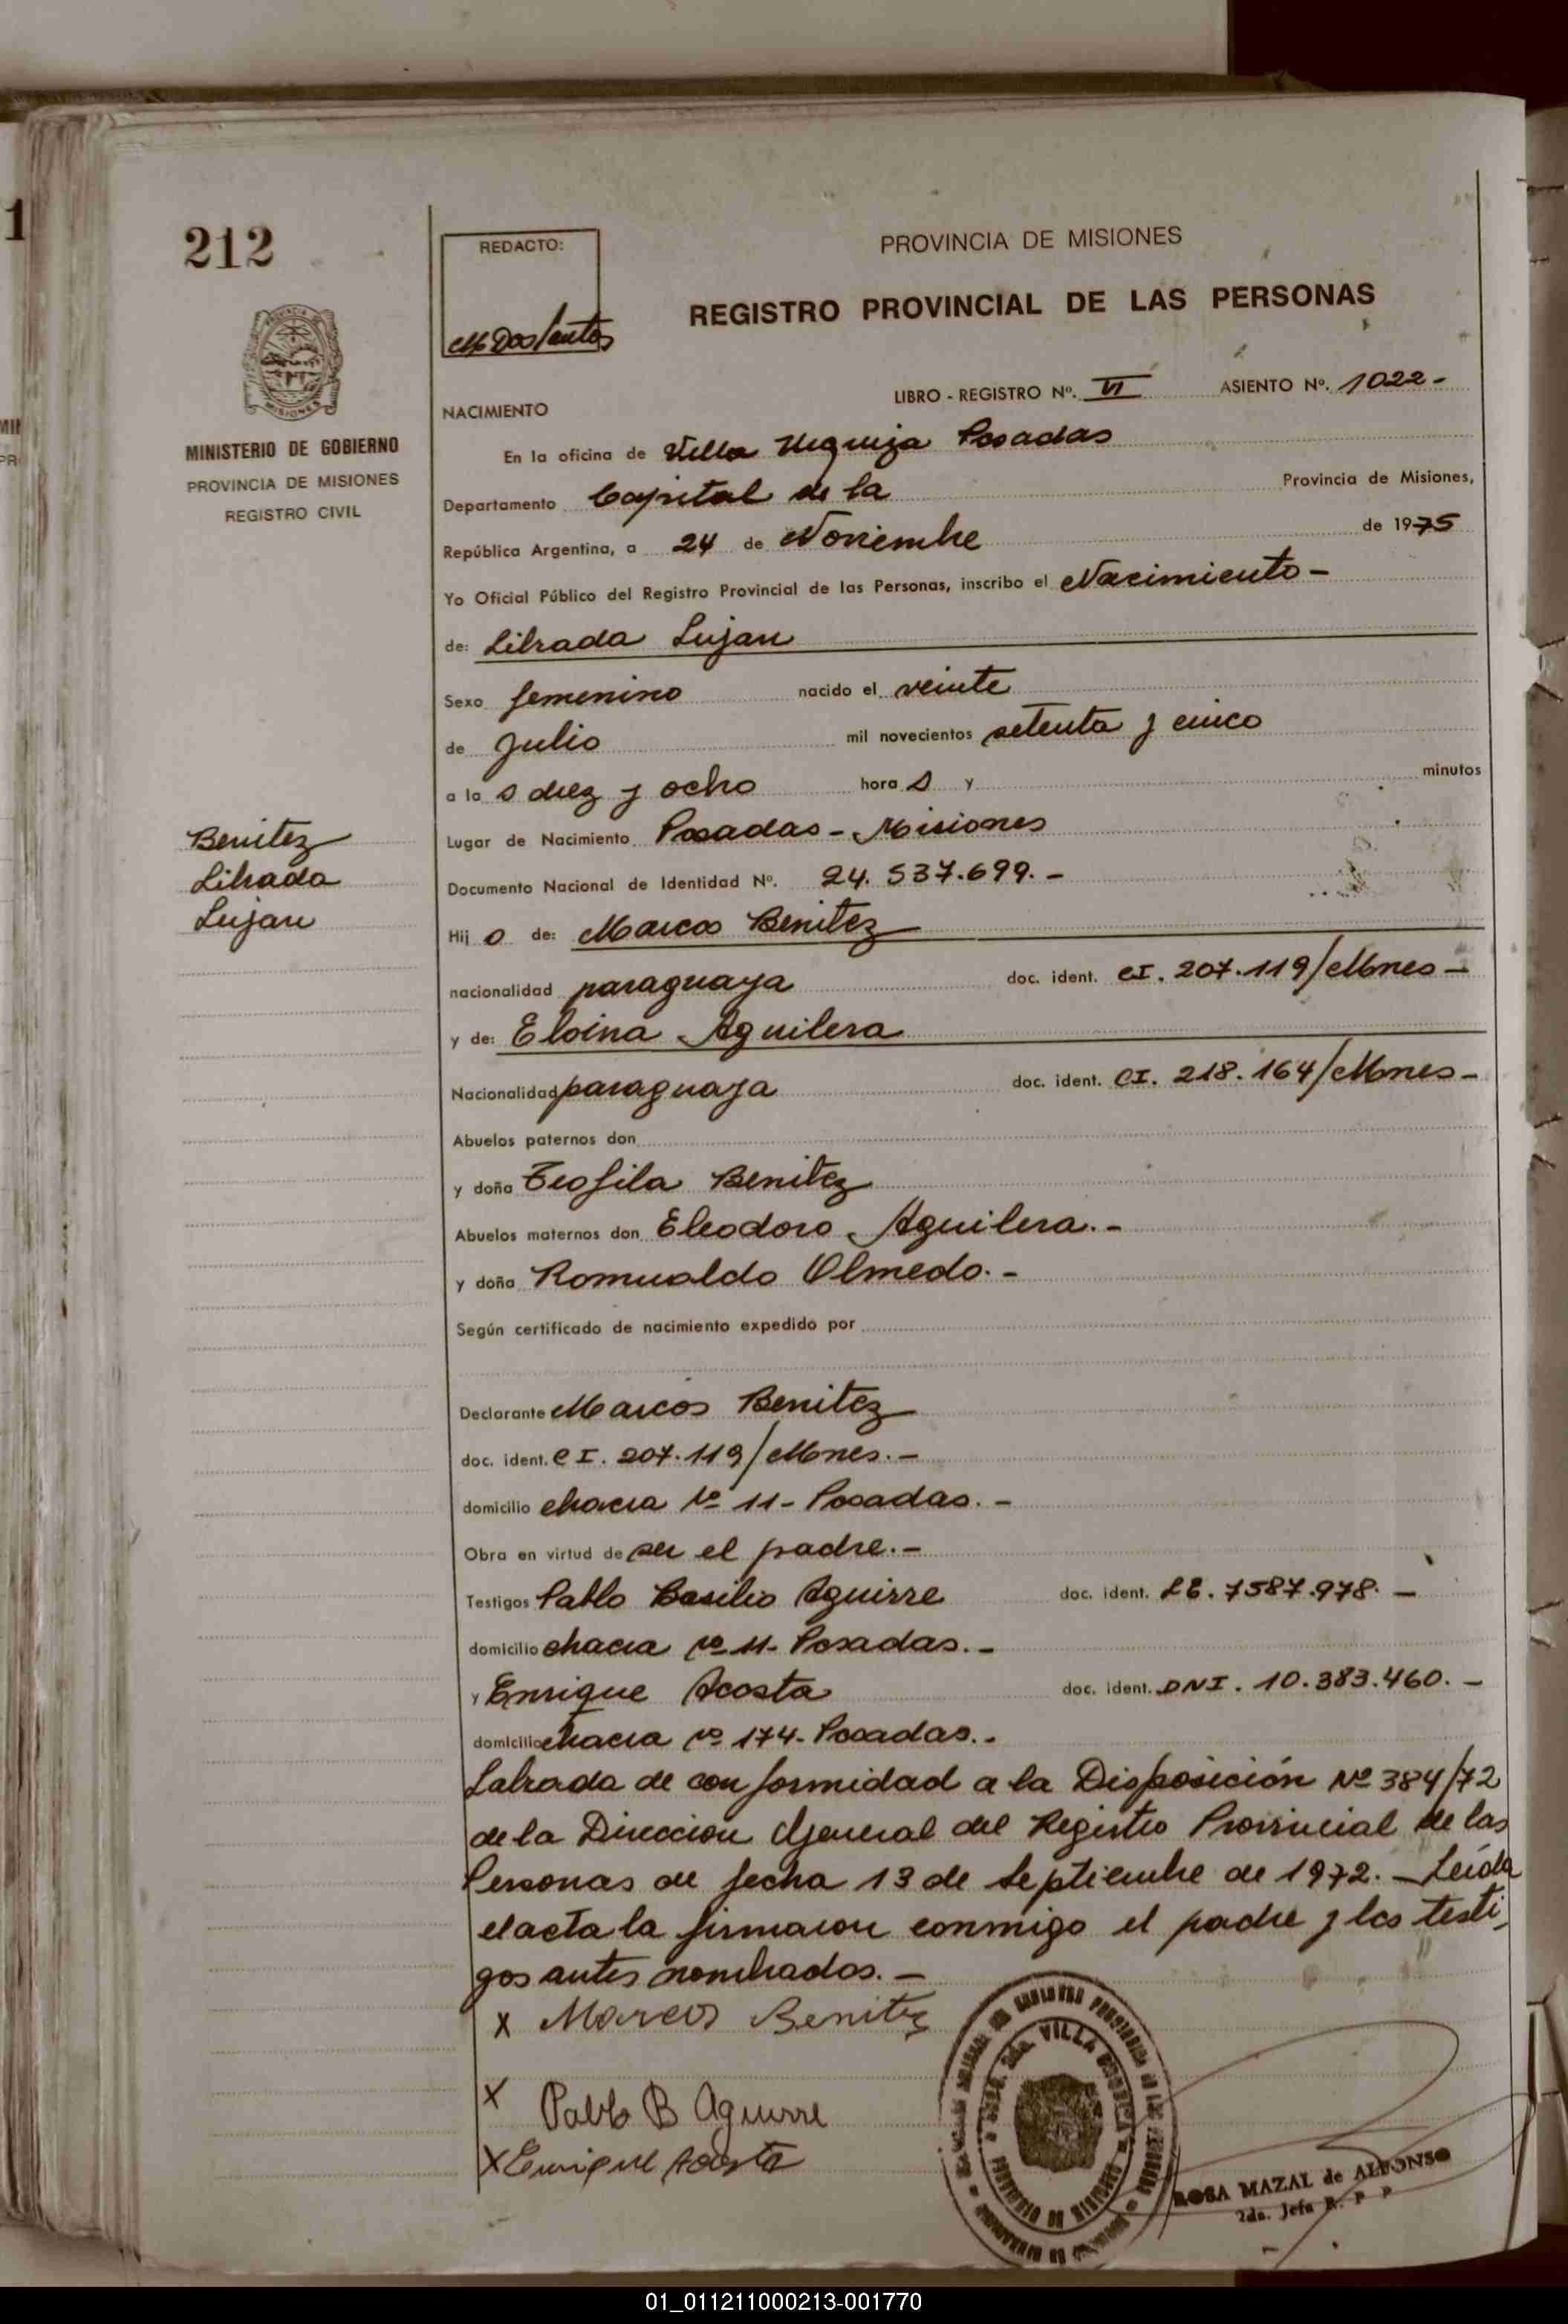 212
REDACTO:
PROVINCIA DE MISIONES
REGISTRO PROVINCIAL DE LAS PERSONAS
LIBRO - REGISTRO Nº. VI ASIENTO Nº. 1022-
NACIMIENTO
MINISTERIO DE GOBIERNO
PROVINCIA DE MISIONES
REGISTRO CIVIL
En la oficina de Villa Urquiza Posadas
Departamento Capital de la Provincia de Misiones,
República Argentina, a 24 de Noviembre de 1975
Yo Oficial Público del Registro Provincial de las Personas, inscribo el Nacimiento-
de: Librada Lujan
Sexo femenino nacido el veinte
de Julio mil novecientos setenta y cinco
a la s diez y ocho hora s y minutos
Benitez
Librada
Lujan
Lugar de Nacimiento Posadas - Misiones
Documento Nacional de Identidad Nº. 24.537.699.-
Hij o de: Marcos Benitez
nacionalidad paraguaya doc. ident. CI. 207.119/Mnes-
y de: Eloina Aguilera
Nacionalidad paraguaya doc. ident. CI. 218.164/Mnes-
Abuelos paternos don
y doña Teofila Benitez
Abuelos maternos don Eleodoro Aguilera.-
y doña Romualdo Olmedo.-
Según certificado de nacimiento expedido por
Declarante Marcos Benitez
doc. ident. CI. 207.119/Mnes.-
domicilio chacra Nº 11- Posadas.-
Obra en virtud de ser el padre.-
Testigos Pablo Basilio Aguirre doc. ident. LE. 7587.978.-
domicilio chacra Nº 11- Posadas.-
y Enrique Acosta doc. ident. DNI. 10.383.460.-
domicilio chacra Nº 174- Posadas.-
Labrada de conformidad a la Disposición Nº 384/72
de la Direccion General del Registro Provincial de las
Personas de fecha 13 de Septiembre de 1972.- Leída
el acta la firmaron conmigo el padre y los testi-
gos antes nombrados.-
x Marcos Benitez
x Pablo B Aguirre
x Enrique Acosta
VILLA URQUIZA
ROSA MAZAL de ALFONSO
2da. Jefa R. P. P
01_011211000213-001770